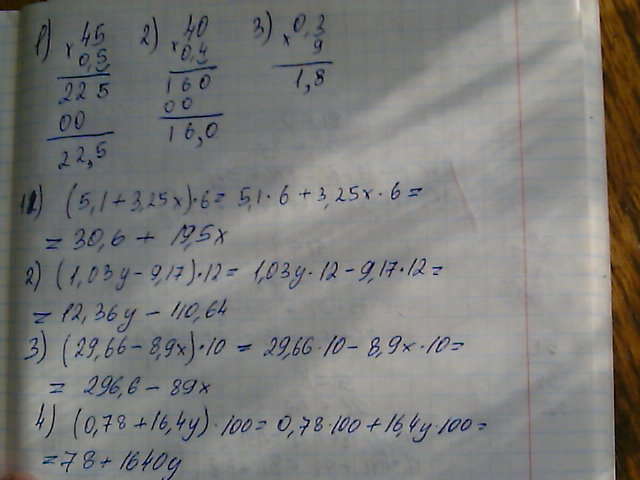 1) 45 2) 40 3) 0,3
× 0,5 × 0,4 × 9
225 160 1,8
00 00
22,5 16,0
1) (5,1 + 3,25x)·6 = 5,1·6 + 3,25x·6 =
= 30,6 + 19,5x
2) (1,03y - 9,17)·12 = 1,03y·12 - 9,17·12 =
= 12,36y - 110,64
3) (29,66 - 8,9x)·10 = 29,66·10 - 8,9x·10 =
= 296,6 - 89x
4) (0,78 + 16,4y)·100 = 0,78·100 + 16,4y·100 =
= 78 + 1640y